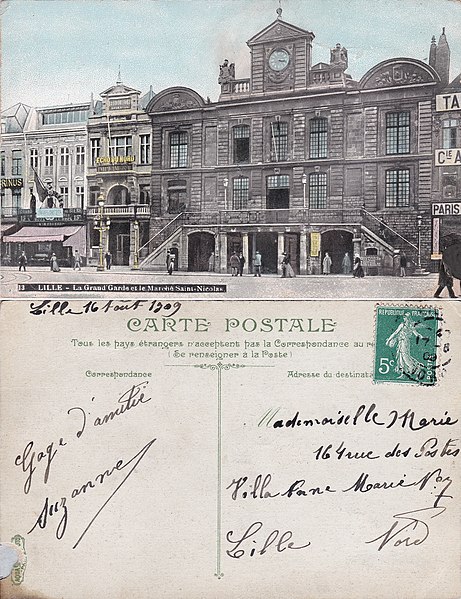 ECHO DU NORD
RINUS
TA
Cie A
PARIS
13 LILLE - La Grand Garde et le Marché Saint-Nicolas
Lille 16 Aout 1909
CARTE POSTALE
Tous les pays étrangers n'acceptent pas la Correspondance au re
(Se renseigner à la Poste)
Correspondance
Adresse du destinat
REPUBLIQUE FRANÇAISE
5c
Gage d'amitié
Suzanne
Mademoiselle Marie
164 rue des Postes
Villa Anne Marie
Lille Nord